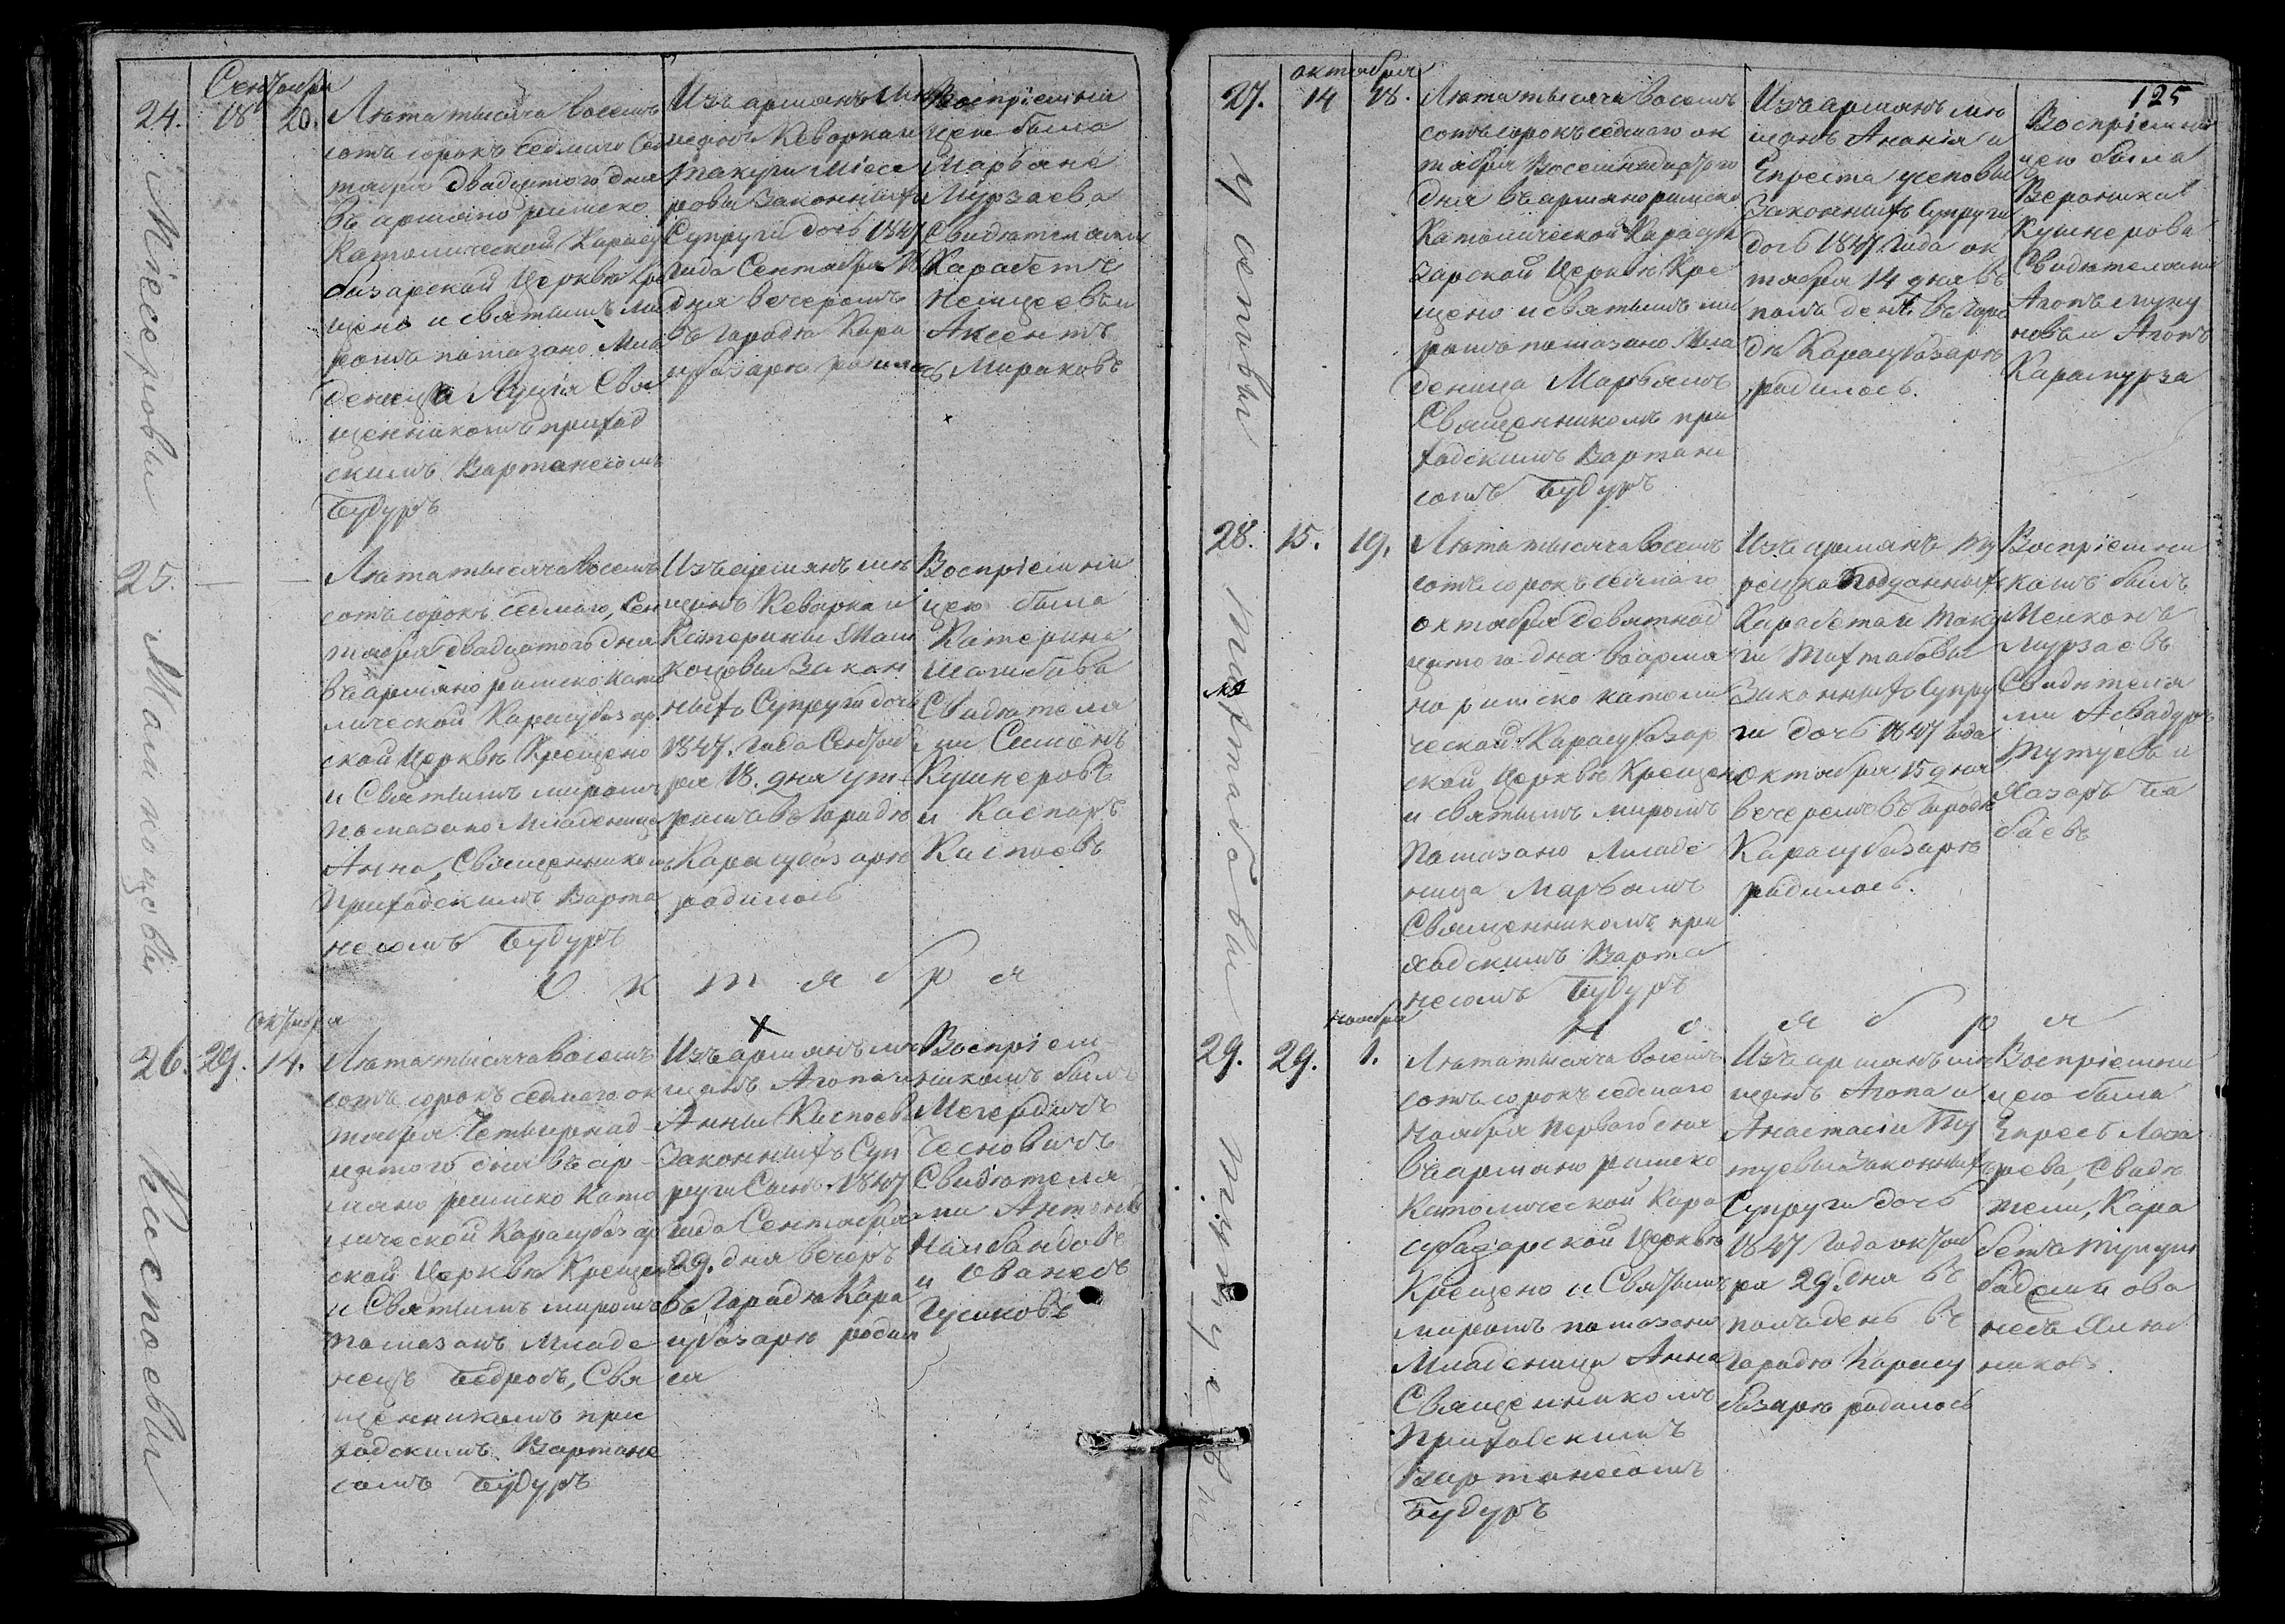 Сентября
24.
18
20.
Лѣта тысяча восемь
сотъ сорокъ седмаго Сен
тября двадцатого дня
въ армяно римско
Католической Карасу
базарской Церквѣ Кре
щено и святымъ ми
ромъ помазано Мла
деница Луція Свя
щенникомъ приход
скимъ Вартанесомъ
Будуръ
Изъ армянъ мѣ
щанъ Кеворка и
Такуги Місе
ровы Законныхъ
Супруги дочь 1847
года Сентября 18
дня вечеромъ
въ городѣ Кара
субазарѣ родилась
Воспріемни
цею была
Марьяне
Мурзаева
Свидѣтелями
Карабетъ
Немцеевъ и
Аксентъ
Мираковъ
Місеровы
25.
Лѣта тысяча восемь
сотъ сорокъ седмаго, Сен
тября двадцатого дня
въ армяно римско като
лической Карасубазар
ской Церквѣ Крещено
и Святымъ миромъ
помазано Младеница
Анна, Священникомъ
Приходскимъ Варта
несомъ Будуръ
Изъ армянъ мѣ
щанъ Кеворка и
Катерины Маш
коцовы Закон
ныхъ Супруги дочь
1847. Года Сентяб
ря 18. дня ут
ромъ въ Городѣ
Карасубазарѣ
родилось
Воспріемни
цею была
Катерина
Свидѣтеля
ми Симонъ
Кушнеровъ
и Каспаръ
Каспоевъ
Машкоцовы
Октября
Октября
26.
29.
14.
Лѣта тысяча восемь
сотъ сорокъ седмаго ок
тября Четырнад
цятого дня въ ар
мяно римско Като
лической Карасубазар
ской Церквѣ Крещенъ
и Святымъ миромъ
помазанъ Младе
нецъ Бедросъ, Свя
щенникомъ при
ходскимъ Вартане
сомъ Будуръ
Изъ армянъ мѣ
щанъ Агопа и
Анны Каспоевы
Законныхъ Суп
руги Сынъ 1847
года Сентября
29. дня вечеръ
въ Городѣ Кара
субазарѣ родил
ся
Воспріем
никомъ былъ
Мегердичъ
Чесновичъ
Свидѣтеля
ми Антонъ
Налбандовъ
и Ованесъ
Гусиковъ
Каспоевы
125
октября
27.
14
18.
Лѣта тысяча восемь
сотъ сорокъ седмаго ок
тября Восемнадцатого
дня въ армяно римско
Католической Карасуба
зарской Церквѣ Кре
щено и святымъ ми
ромъ помазано Мла
деница Марьямъ
Священникомъ при
ходскимъ Вартане
сомъ Будуръ
Изъ армянъ мѣ
щанъ Ананія и
Епреста усеповы
Законныхъ Супруги
дочь 1847 года ок
тября 14 дня въ
полъ день въ горо
дѣ Карасубазарѣ
родилось.
Воспріемни
цею была
Вероника
Кушнерова
Свидѣтелями
Агопъ
новъ и Агопъ
Карамурза
усеповы
28.
15.
19.
Лѣта тысяча восемь
сотъ сорокъ седмаго
октября девятнад
цятого дня въ армя
но римско католи
ческой Карасубазар
ской Церквѣ Крещено
и святымъ миромъ
Помазано Младе
ница Марьямъ
Священникомъ при
ходскимъ Варта
несомъ Будуръ
Изъ армянъ ту
рецка Подданныхъ
Карабета и Таку
ги Тахтабовы
Законныхъ Супру
ги дочь 1847 года
Октября 15 дня
вечеромъ въ городѣ
Карасубазарѣ
родилось.
Воспріемни
комъ былъ
Мелконъ
Мурзаевъ
Свидѣтеля
ми Асвадуръ
Тутуевъ и
Хазаръ Ба
баевъ
Тахтабовы
Ноября
ноября
29.
29.
1.
Лѣта тысяча восемь
сотъ сорокъ седмаго
Ноября Перваго дня
въ армяно римско
Католической Кара
субазарской Церквѣ
Крещено и Святымъ
миромъ помазано
Младеница Анна
Священникомъ
Приходскимъ
Вартанесомъ
Будуръ
Изъ армянъ мѣ
щанъ Агопа и
Анастасіи Ту
туевы Законныхъ
Супруги дочь
1847 Года октяб
ря 29. дня въ
полъ день въ
Городѣ Карасу
базарѣ родилось
Воспріемни
цею была
Епресъ Лаза
рева, Свидѣ
тели, Кара
бетъ
и ова
несъ
Тутуевы